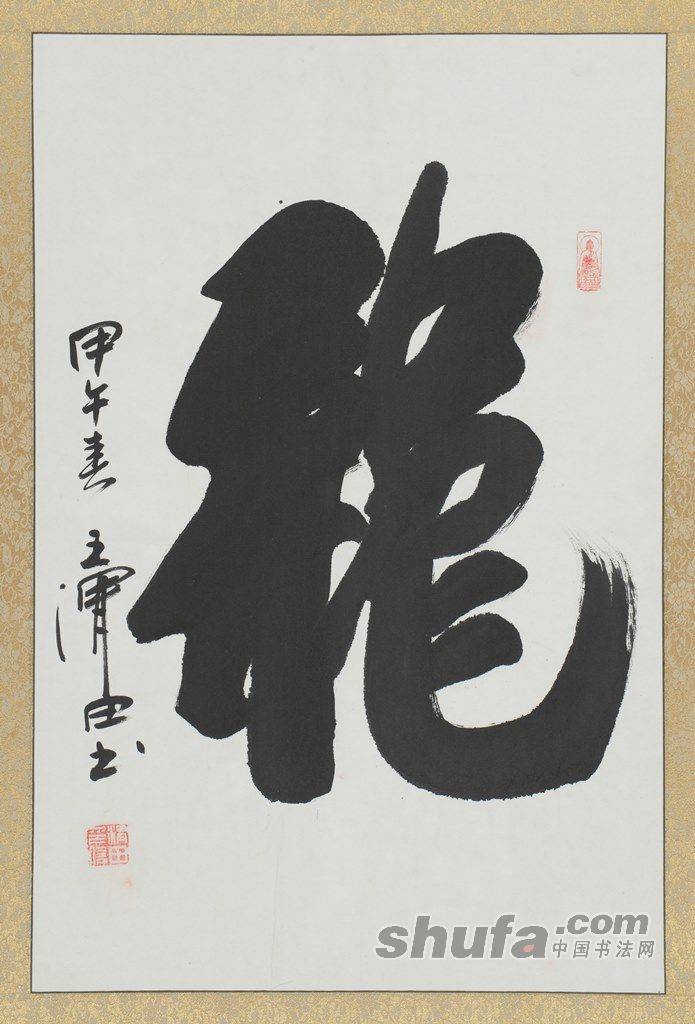 龍
甲午春 王 田书
shufa.com
中国书法网